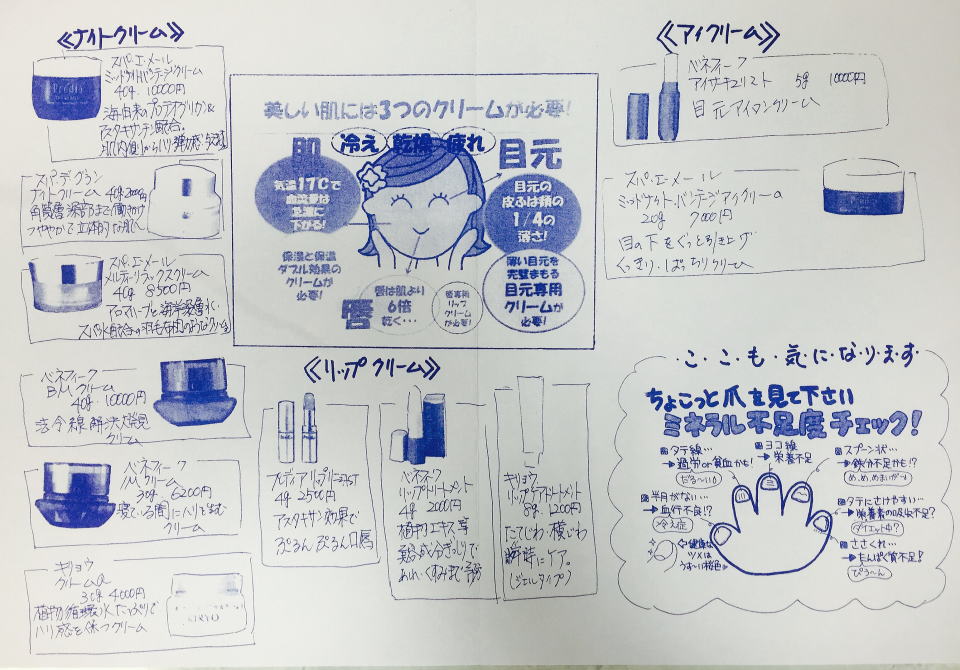 ≪ナイトクリーム≫
スパ・エ・メール
ミッドナイトバンテージクリーム
40g 10000円
海由来のプロテオグリカン&
アスタキサンチン配合。
Predia
スパ・デ・グラン
ナイトクリーム 40g
角質層深部まで働きかけ
つややかで立体的な肌へ
スパ・エ・メール
メルティーリラックスクリーム
40g 8500円
アロマハーブと海洋深層水・
ベネフィーク
BMクリーム
40g 10000円
法令線解決大発見
クリーム
ベネフィーク
NMクリーム
30g 6200円
寝ている間にハリを生む
クリーム
キリョウ
クリームa
30g 4000円
植物循環水たっぷりで
ハリ感を保つクリーム
KIRYO
美しい肌には3つのクリームが必要!
冷え 乾燥 疲れ
肌
気温17℃で
血流量は
急激に
下がる!
保湿と保温
ダブル効果の
クリームが
必要!
目元
目元の
皮ふは頬の
1/4の
薄さ!
薄い目元を
完璧まもる
目元専用
クリームが
必要!
唇
唇は肌より
6倍
乾く…
唇専用
リップ
クリーム
が必要!
≪リップクリーム≫
プレディア リップリニュスト
4g 2500円
アスタキサンチン効果で
ぷるん ぷるん口唇
ベネフィーク
リップトリートメント
4g 2000円
植物エキス等
美容成分ぎっしりで
あれ・くすみまで予防
キリョウ
リップケアトリートメント
8g 1200円
たてじわ・横じわ
瞬時にケア。
(ジェルタイプ)
≪アイクリーム≫
ベネフィーク
アイサキュリスト 5g 10000円
目元アイロンクリーム
スパ・エ・メール
ミッドナイト・バンテージアイクリームa
20g 7000円
目の下をぐっと引き上げ
くっきり・ぱっちりクリーム
・こ・こ・も・気・に・な・り・ま・す
ちょこっと爪を見て下さい
ミネラル不足度チェック!
タテ線…
→過労or貧血かも!
だる〜い
ヨコ線
→栄養不足
スプーン状…
→鉄分不足かも!?
め、め、めまいが〜
半月がない…
→血行不良!?
冷え症
タテにさけやすい…
→栄養素の吸収不足?
ダイエット中?
ささくれ…
→たんぱく質不足!
ぴろ〜ん
健康な
ツメは
うす〜い桜色